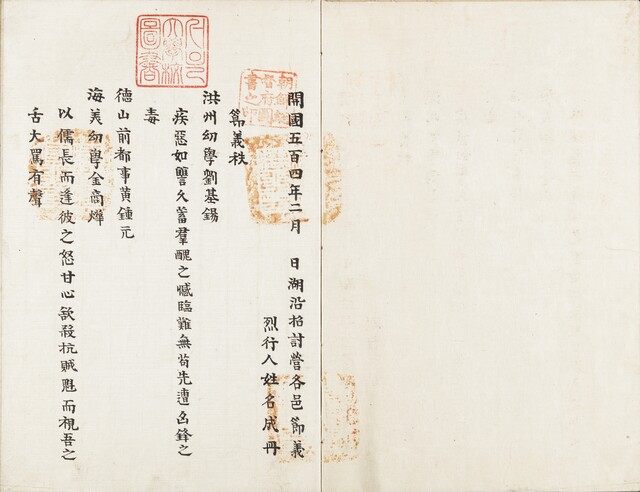 朝鮮總督府圖書之印
開國五百四年二月 日湖沿招討營各邑節義
烈行人姓名成冊
節義秩
洪州幼學劉基錫
疾惡如讐久蓄羣醜之憾臨難無苟先遭凶鋒之
毒
德山前都事黃鍾元
海美幼學金商燁
以儒長而逢彼之怒甘心欲殺抗賊魁而視吾之
舌大罵有聲